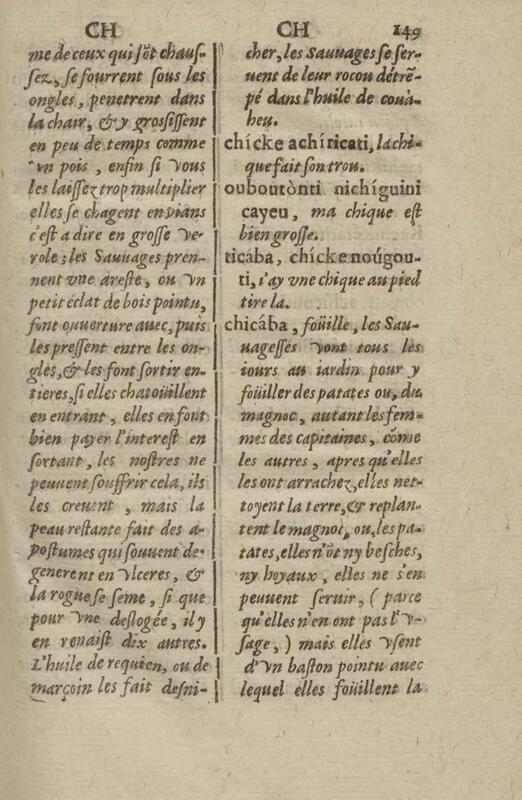 CH
me de ceux qui sõt chaus-
sez, se fourrent sous les
ongles, penetrent dans
la chair, & y grossissent
en peu de temps comme
vn pois, enfin si vous
les laissez trop multiplier
elles se chãgent en pians
c'est a dire en grosse ve-
role; les Sauuages pren-
nent vne areste, ou vn
petit éclat de bois pointu,
font ouuerture auec, puis
les pressent entre les on-
gles, & les font sortir en-
tieres, si elles chatoüillent
en entrant, elles en font
bien payer l'interest en
sortant, les nostres ne
peuuent souffrir cela, ils
les creuent, mais la
peau restante fait des a-
postumes qui souuent de-
generent en vlceres, &
la rogue se seme, si que
pour vne deslogée, il y
en renaist dix autres.
L'huile de requien, ou de
marçoin les fait desni-
CH 149
cher, les Sauuages se ser-
uent de leur rocou détrẽ-
pé dans l'huile de couà-
heu.
chícke achíricati, la chi-
que fait son trou.
ouboutònti nichíguini
cayeu, ma chique est
bien grosse.
ticába, chícke noúgou-
ti, i'ay vne chique au pied
tire la.
chicába, foüille, les Sau-
uagesses vont tous les
iours au iardin pour y
foüiller des patates ou, du
magnoc, autant les fem-
mes des capitaines, cõme
les autres, apres qu'elles
les ont arrachez, elles net-
toyent la terre, & replan-
tent le magnoc, ou, les pa-
tates, elles n'õt ny besches,
ny hoyaux, elles ne s'en
peuuent seruir, (parce
qu'elles n'en ont pas l'v-
sage,) mais elles vsent
d'vn baston pointu auec
lequel elles foüillent la